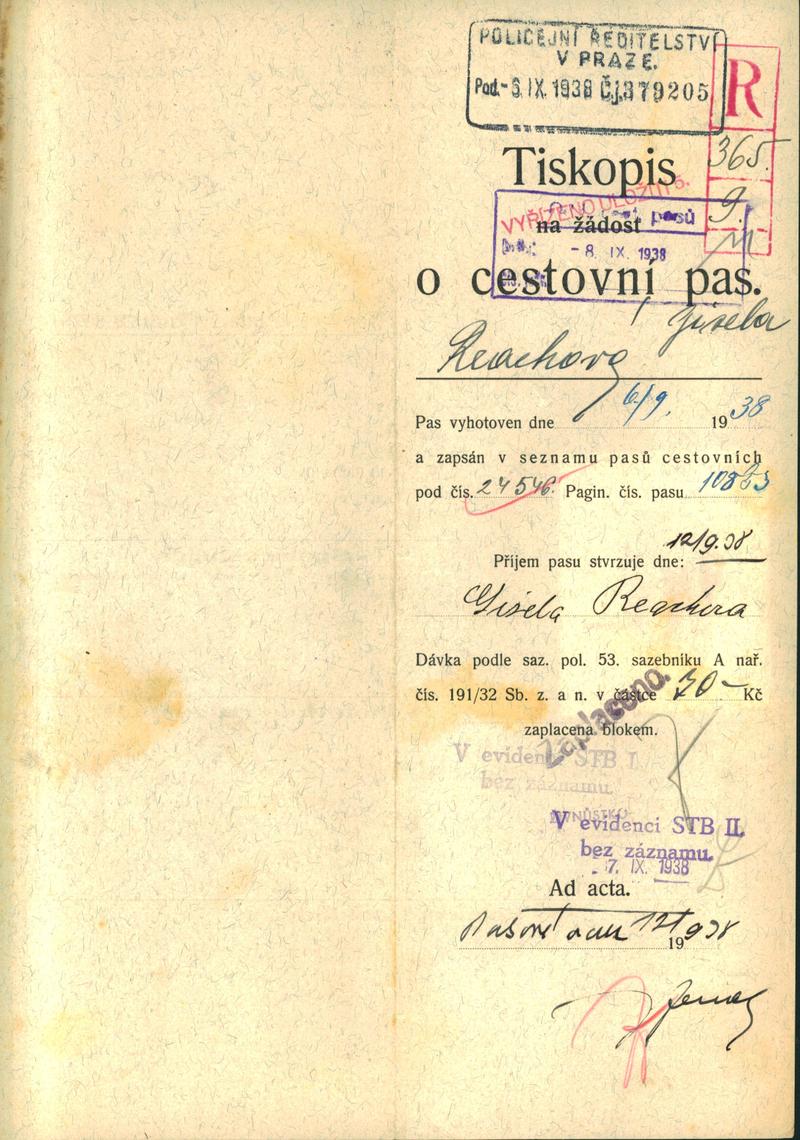 POLICEJNÍ ŘEDITELSTVÍ
V PRAZE.
Pod.- 6. IX. 1938 Čj. 379205
R
365.
9.
Tiskopis
VYŘÍZENO ULOŽITI
pasů
na žádost
- 8. IX. 1938
o cestovní pas.
Gisela
Reachová
Pas vyhotoven dne 6/9. 1938
a zapsán v seznamu pasů cestovních
pod čís. 24546. Pagin. čís. pasu
12/9.38
Příjem pasu stvrzuje dne:
Gisela Reachova
Dávka podle saz. pol. 53. sazebníku A nař.
čís. 191/32 Sb. z. a n. v částce 70 – Kč
zaplacena blokem.
Zaplaceno.
V evidenci STB I.
bez záznamu.
V evidenci STB II.
bez záznamu.
- 7. IX. 1938
Ad acta.
12/9 38
19